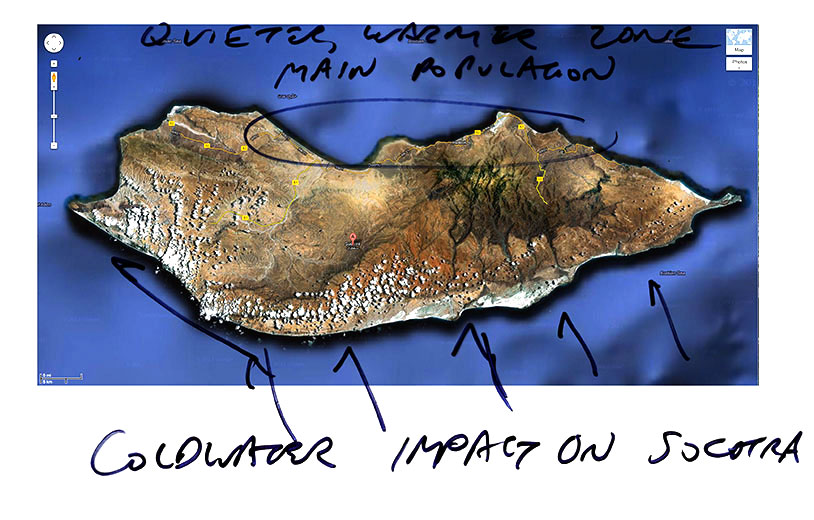 QUIETER, WARMER ZONE
MAIN POPULATION
Map
Photos
Arabian Sea
5 mi
5 km
COLDWATER IMPACT ON SOCOTRA